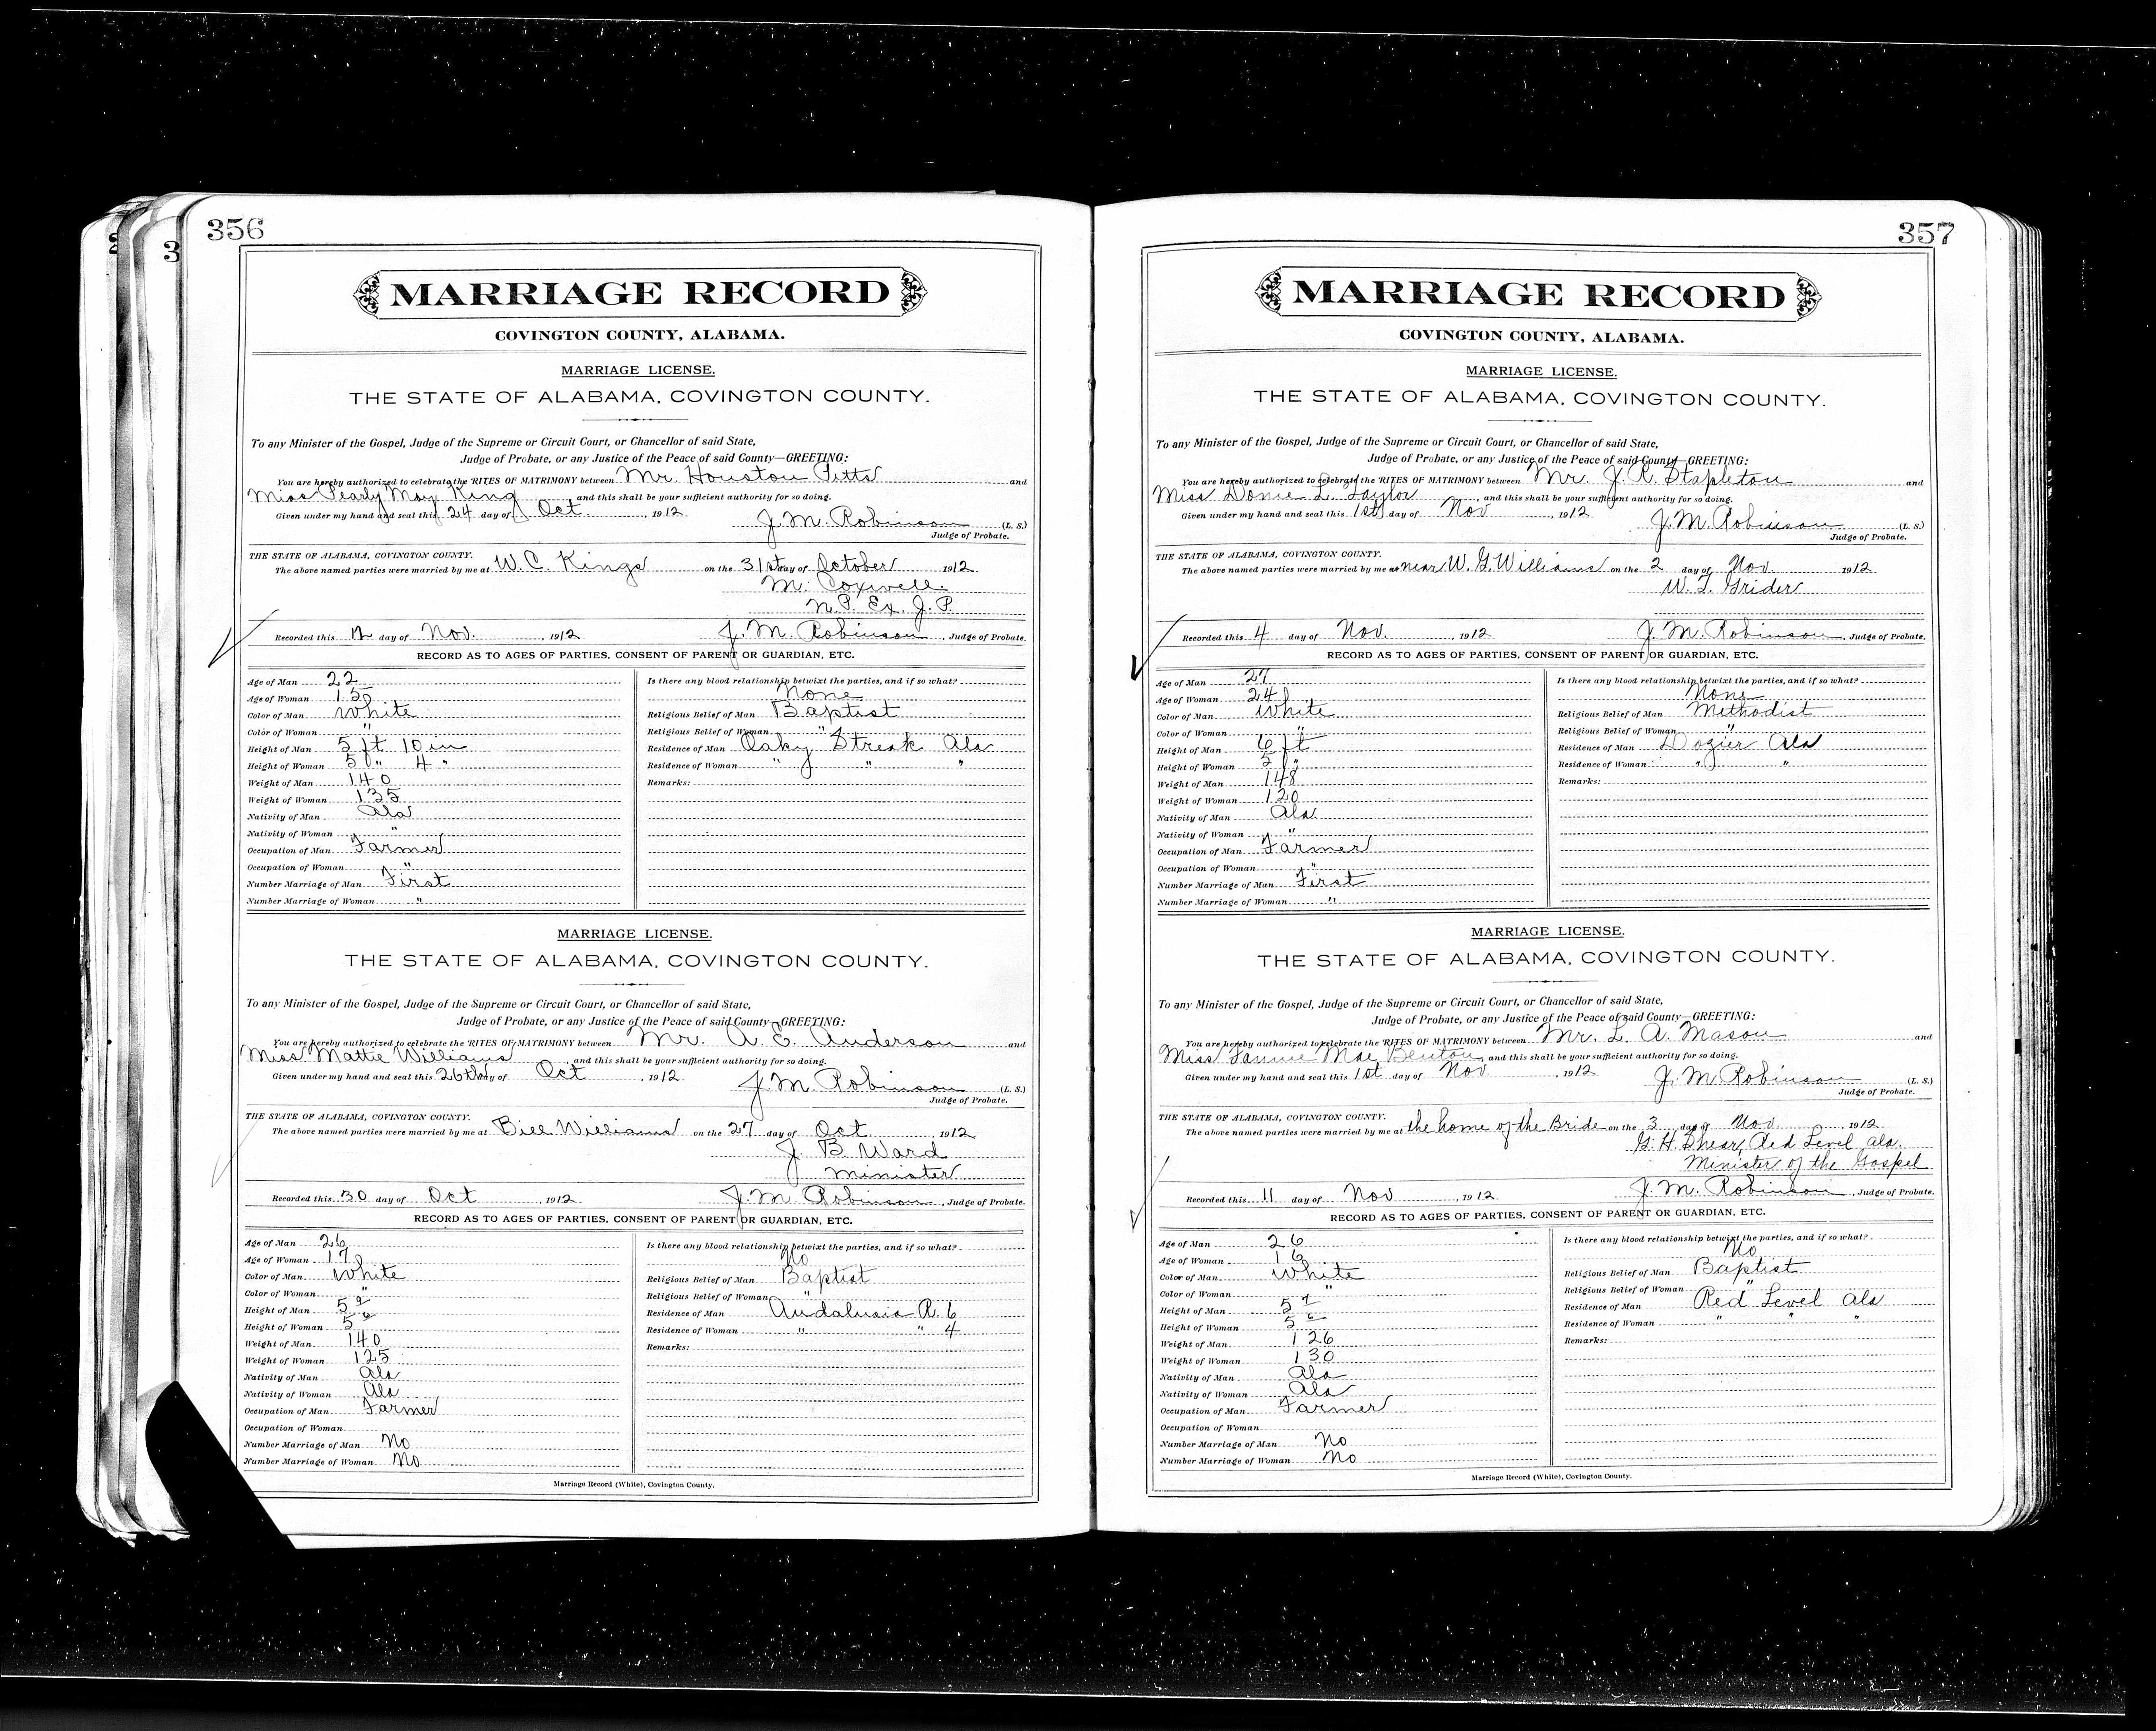 356
MARRIAGE RECORD
COVINGTON COUNTY, ALABAMA.
MARRIAGE LICENSE.
THE STATE OF ALABAMA, COVINGTON COUNTY.
To any Minister of the Gospel, Judge of the Supreme or Circuit Court, or Chancellor of said State,
Judge of Probate, or any Justice of the Peace of said County—GREETING:
You are hereby authorized to celebrate the RITES OF MATRIMONY between Mr. Houston Pitts and
Miss Pearly May King, and this shall be your sufficient authority for so doing.
Given under my hand and seal this 24 day of Oct, 1912 J. M. Robinson (L. S.)
Judge of Probate.
THE STATE OF ALABAMA, COVINGTON COUNTY.
The above named parties were married by me at W. C. Kings on the 31st day of October 1912
M. Coxwell.
N. P. Ex. J. P.
Recorded this 12 day of Nov. , 1912 J. M. Robinson, Judge of Probate.
RECORD AS TO AGES OF PARTIES, CONSENT OF PARENT OR GUARDIAN, ETC.
Age of Man 22
Age of Woman 15
Color of Man White
Color of Woman "
Height of Man 5 ft 10 in
Height of Woman 5 " 4 "
Weight of Man 140
Weight of Woman 135
Nativity of Man Ala
Nativity of Woman "
Occupation of Man Farmer
Occupation of Woman "
Number Marriage of Man First
Number Marriage of Woman "
Is there any blood relationship betwixt the parties, and if so what?
None
Religious Belief of Man Baptist
Religious Belief of Woman "
Residence of Man Oaky Streak Ala
Residence of Woman " " "
Remarks:
MARRIAGE LICENSE.
THE STATE OF ALABAMA, COVINGTON COUNTY.
To any Minister of the Gospel, Judge of the Supreme or Circuit Court, or Chancellor of said State,
Judge of Probate, or any Justice of the Peace of said County—GREETING:
You are hereby authorized to celebrate the RITES OF MATRIMONY between Mr. A. E. Anderson and
Miss Mattie Williams, and this shall be your sufficient authority for so doing.
Given under my hand and seal this 26th day of Oct, 1912 J. M. Robinson (L. S.)
Judge of Probate.
THE STATE OF ALABAMA, COVINGTON COUNTY.
The above named parties were married by me at Bill Williams on the 27 day of Oct. 1912
J. B. Ward
Minister
Recorded this 30 day of Oct , 1912 J. M. Robinson, Judge of Probate.
RECORD AS TO AGES OF PARTIES, CONSENT OF PARENT OR GUARDIAN, ETC.
Age of Man 26
Age of Woman 17
Color of Man White
Color of Woman "
Height of Man 5 9
Height of Woman 5 6
Weight of Man 140
Weight of Woman 125
Nativity of Man Ala
Nativity of Woman Ala
Occupation of Man Farmer
Occupation of Woman
Number Marriage of Man No
Number Marriage of Woman No
Is there any blood relationship betwixt the parties, and if so what?
No
Religious Belief of Man Baptist
Religious Belief of Woman "
Residence of Man Andalusia R. 6
Residence of Woman " " 4
Remarks:
Marriage Record (White), Covington County.
357
MARRIAGE RECORD
COVINGTON COUNTY, ALABAMA.
MARRIAGE LICENSE.
THE STATE OF ALABAMA, COVINGTON COUNTY.
To any Minister of the Gospel, Judge of the Supreme or Circuit Court, or Chancellor of said State,
Judge of Probate, or any Justice of the Peace of said County—GREETING:
You are hereby authorized to celebrate the RITES OF MATRIMONY between Mr. J. R. Stapleton and
Miss Donie L. Taylor, and this shall be your sufficient authority for so doing.
Given under my hand and seal this 1st day of Nov, 1912 J. M. Robinson (L. S.)
Judge of Probate.
THE STATE OF ALABAMA, COVINGTON COUNTY.
The above named parties were married by me at near W. G. Williams on the 2 day of Nov 1912
W. T. Grider
Recorded this 4 day of Nov. , 1912 J. M. Robinson, Judge of Probate.
RECORD AS TO AGES OF PARTIES, CONSENT OF PARENT OR GUARDIAN, ETC.
Age of Man 27
Age of Woman 24
Color of Man White
Color of Woman "
Height of Man 6 ft
Height of Woman 5 "
Weight of Man 148
Weight of Woman 120
Nativity of Man Ala.
Nativity of Woman "
Occupation of Man Farmer
Occupation of Woman "
Number Marriage of Man First
Number Marriage of Woman "
Is there any blood relationship betwixt the parties, and if so what?
None
Religious Belief of Man Methodist
Religious Belief of Woman "
Residence of Man Dozier Ala
Residence of Woman " "
Remarks:
MARRIAGE LICENSE.
THE STATE OF ALABAMA, COVINGTON COUNTY.
To any Minister of the Gospel, Judge of the Supreme or Circuit Court, or Chancellor of said State,
Judge of Probate, or any Justice of the Peace of said County—GREETING:
You are hereby authorized to celebrate the RITES OF MATRIMONY between Mr. L. A. Mason and
Miss Fannie Mae Benton, and this shall be your sufficient authority for so doing.
Given under my hand and seal this 1st day of Nov, 1912 J. M. Robinson (L. S.)
Judge of Probate.
THE STATE OF ALABAMA, COVINGTON COUNTY.
The above named parties were married by me at the home of the Bride on the 3 day of Nov. 1912
G. H. Shear, Red Level Ala.
Minister of the Gospel
Recorded this 11 day of Nov , 1912 J. M. Robinson, Judge of Probate.
RECORD AS TO AGES OF PARTIES, CONSENT OF PARENT OR GUARDIAN, ETC.
Age of Man 26
Age of Woman 16
Color of Man White
Color of Woman "
Height of Man 5 7
Height of Woman 5 6
Weight of Man 126
Weight of Woman 130
Nativity of Man Ala
Nativity of Woman Ala
Occupation of Man Farmer
Occupation of Woman
Number Marriage of Man No
Number Marriage of Woman No
Is there any blood relationship betwixt the parties, and if so what?
No
Religious Belief of Man Baptist
Religious Belief of Woman "
Residence of Man Red Level Ala
Residence of Woman " " "
Remarks:
Marriage Record (White), Covington County.